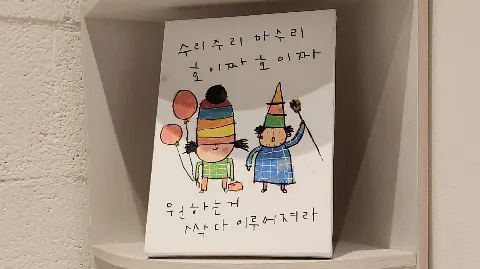 수리수리 마수리
호이짜 호이짜
원하는거
싹 다 이루어져라